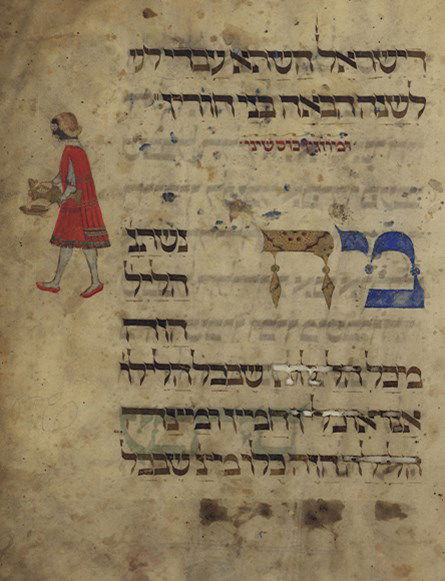 דישראל השתא עבדי
לשנה הבאה בני חורין
ומוזגין כוס שיני
מה נשתנ
הליל
הזה
מכל הלילות שבכל הלילו
אנו אוכלין חמץ ומצה
הלילה הזה כלו מצ שבכל